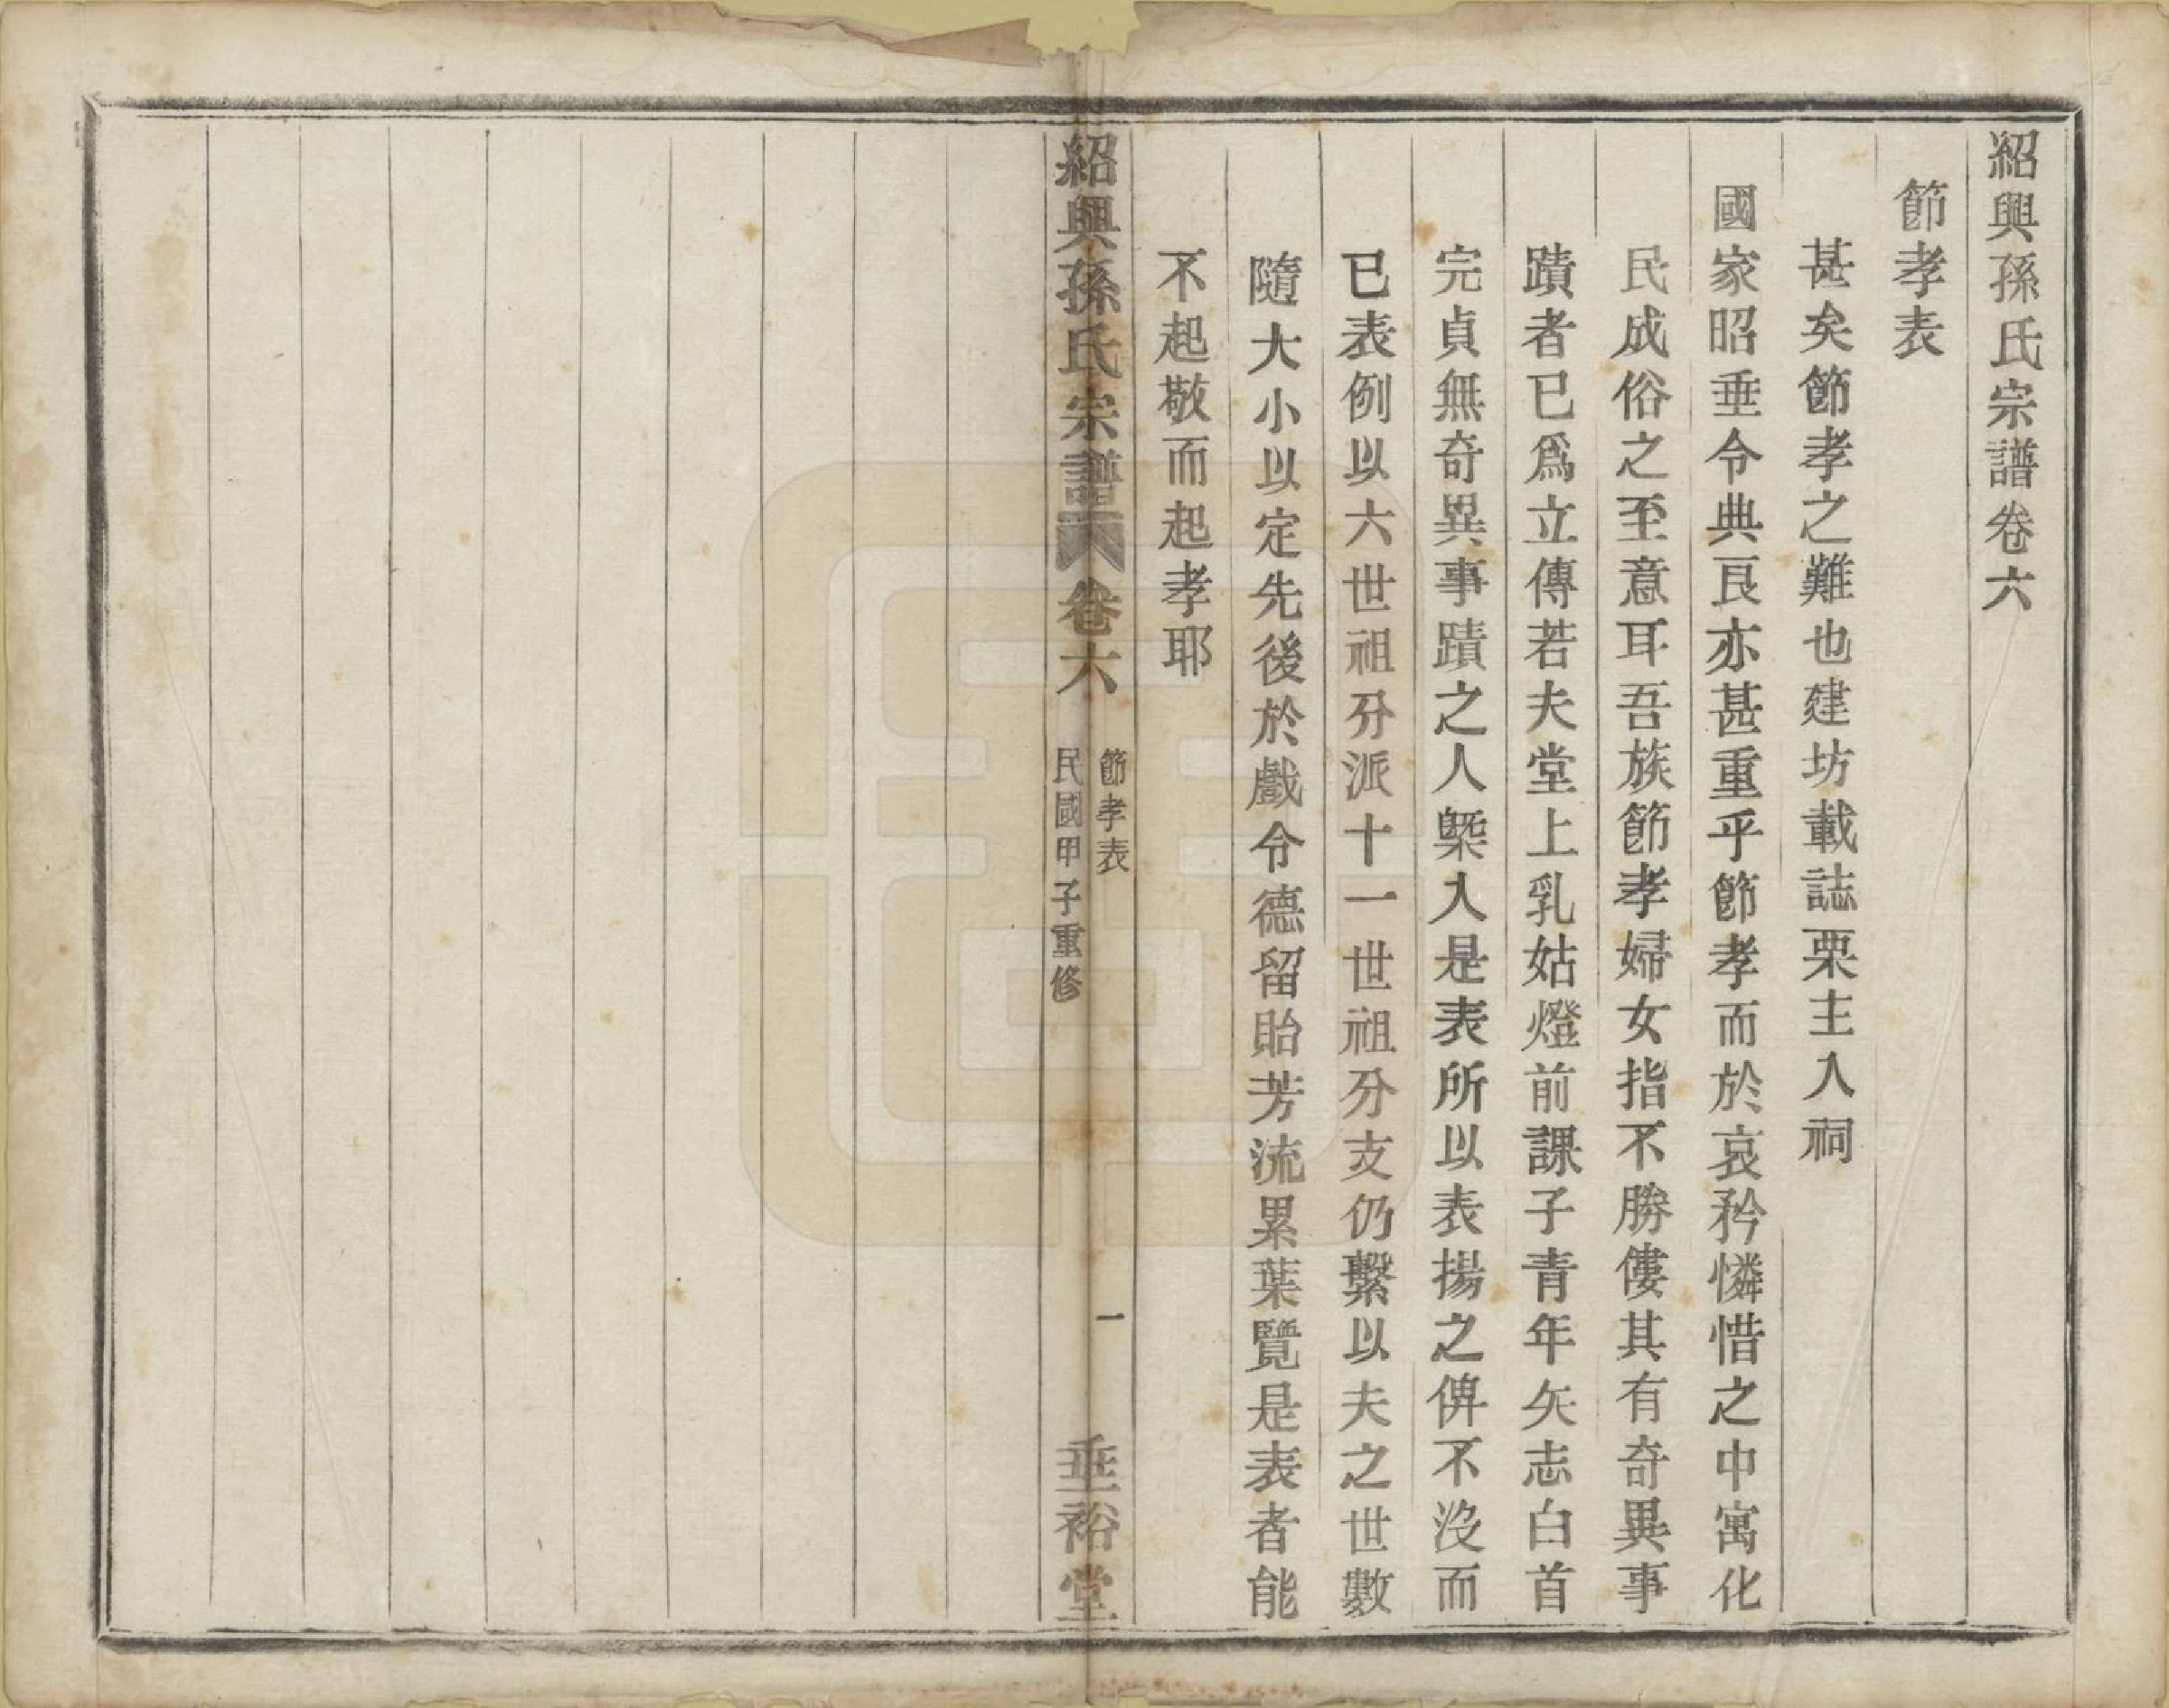 紹興孫氏宗譜卷六
節孝表
甚矣節孝之難也建坊載誌栗主入祠
國家昭垂令典良亦甚重乎節孝而於哀矜憐惜之中寓化
民成俗之至意耳吾族節孝婦女指不勝僂其有奇異事
蹟者已爲立傳若夫堂上乳姑燈前課子青年矢志白首
完貞無奇異事蹟之人槩入是表所以表揚之俾不沒而
已表例以六世祖分派十一世祖分支仍繫以夫之世數
隨大小以定先後於戲令德留貽芳流累葉覽是表者能
不起敬而起孝耶
紹興孫氏宗譜 卷六 節孝表 民國甲子重修 一 垂裕堂